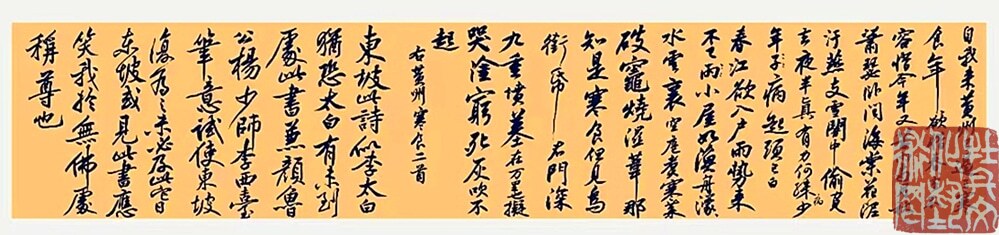 自我来黄州
食年 欲
容惜今年又
蕭瑟卧聞海棠花泥
汙燕支雪闇中偷負
去夜半真有力何殊病少
年子病起頭已白
春江欲入户雨勢来
不已雨小屋如漁舟濛
水雲裏空庖煮寒菜
破竈燒湿葦那
知是寒食但見烏
銜帋君門深
九重墳墓在万里擬
哭塗窮死灰吹不
起
右黄州寒食二首
東坡此詩似李太白
猶恐太白有未到
處此書兼顔魯
公楊少師李西臺
筆意試使東坡
復為之未必及此它日
东坡或見此書應
笑我於無佛處
稱尊也